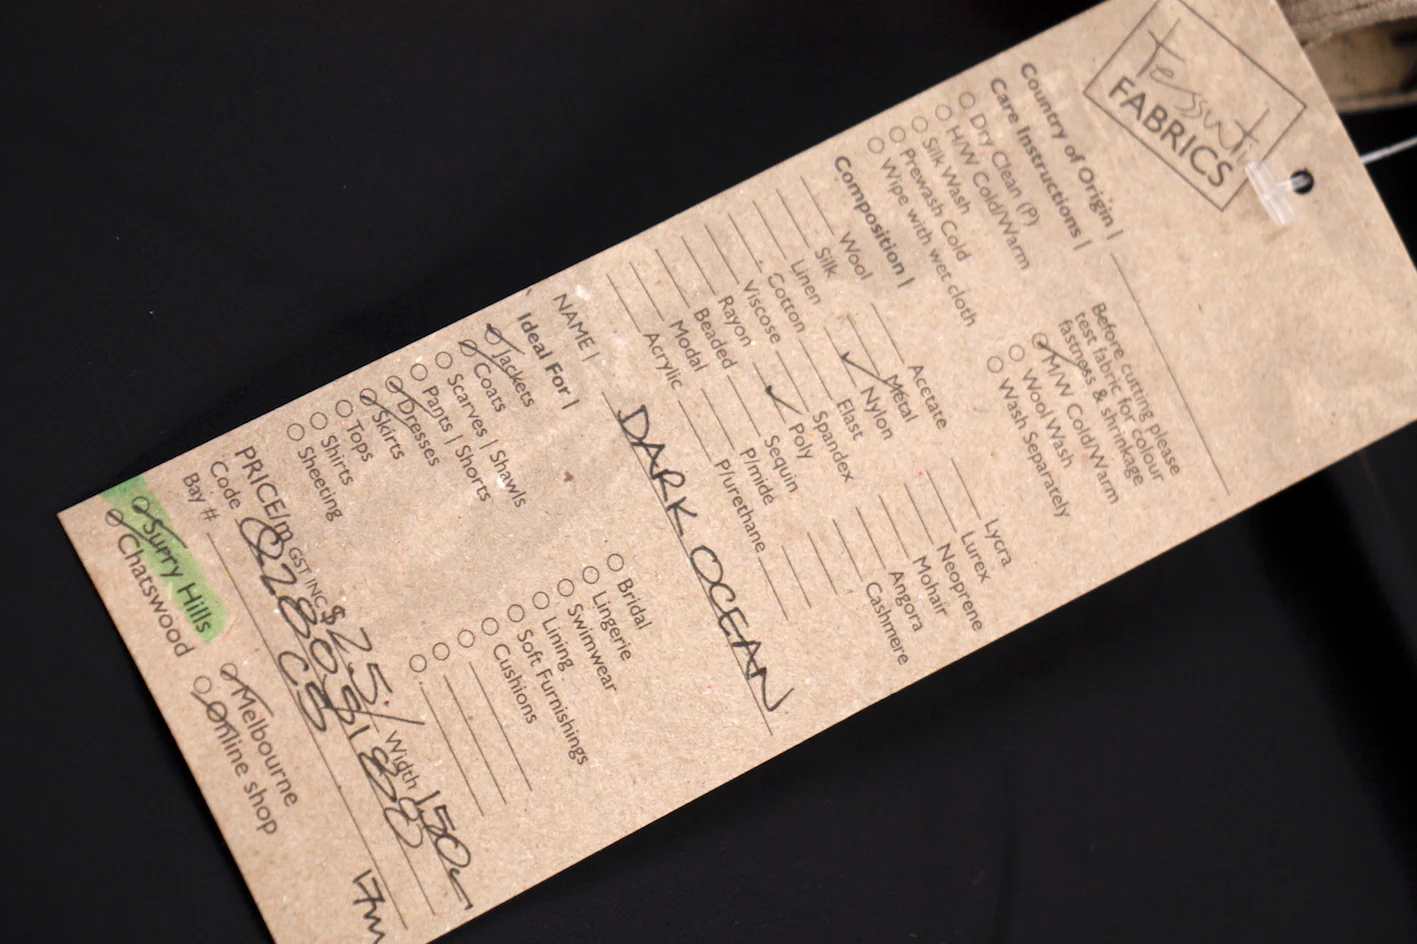 tessuti
FABRICS
Country of Origin |
Care Instructions |
Dry Clean (P)
H/W Cold/Warm
Silk Wash
Prewash Cold
Wipe with wet cloth
Before cutting please
test fabric for colour
fastness & shrinkage
M/W Cold/Warm
Wool Wash
Wash Separately
Composition |
Wool
Silk
Linen
Cotton
Viscose
Rayon
Beaded
Modal
Acrylic
Acetate
Metal
Nylon
Elast
Spandex
Poly
Sequin
P/mide
P/urethane
Lycra
Lurex
Neoprene
Mohair
Angora
Cashmere
NAME | DARK OCEAN
Ideal For |
Jackets
Coats
Scarves | Shawls
Pants | Shorts
Dresses
Skirts
Tops
Shirts
Sheeting
Bridal
Lingerie
Swimwear
Lining
Soft Furnishings
Cushions
PRICE/m GST INC $ 25./ Width 150c
Code
Bay # C8 17m
Surry Hills
Chatswood
Melbourne
Online shop